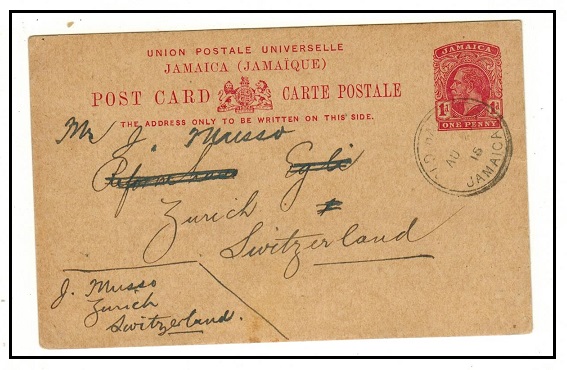 UNION POSTALE UNIVERSELLE
JAMAICA (JAMAÏQUE)
POST CARD CARTE POSTALE
THE ADDRESS ONLY TO BE WRITTEN ON THIS SIDE.
JAMAICA
1D 1D
ONE PENNY
JAMAICA
Mr J. Musso
Egli
Zurich
Switzerland
J. Musso
Zurich
Switzerland.